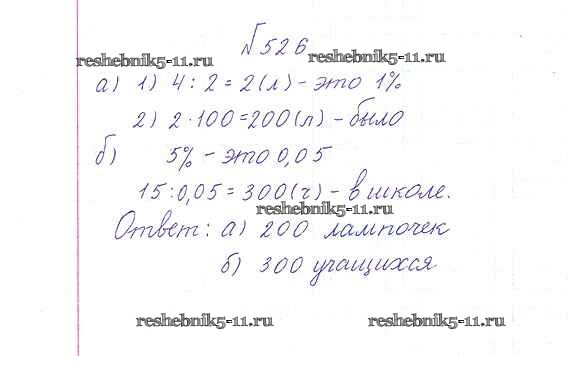 №526
reshebnik5-11.ru reshebnik5-11.ru
а) 1) 4 : 2 = 2(л) - это 1%
2) 2 · 100 = 200(л) - было
б) 5% - это 0,05
15 : 0,05 = 300(ч) - в школе.
reshebnik5-11.ru
Ответ: а) 200 лампочек
б) 300 учащихся
reshebnik5-11.ru reshebnik5-11.ru